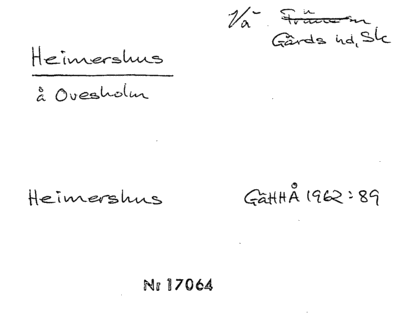 Vä
Gärds hd, Sk
Heimershus
å Ovesholm
Heimershus GäHHÅ 1962:89
Nr 17064